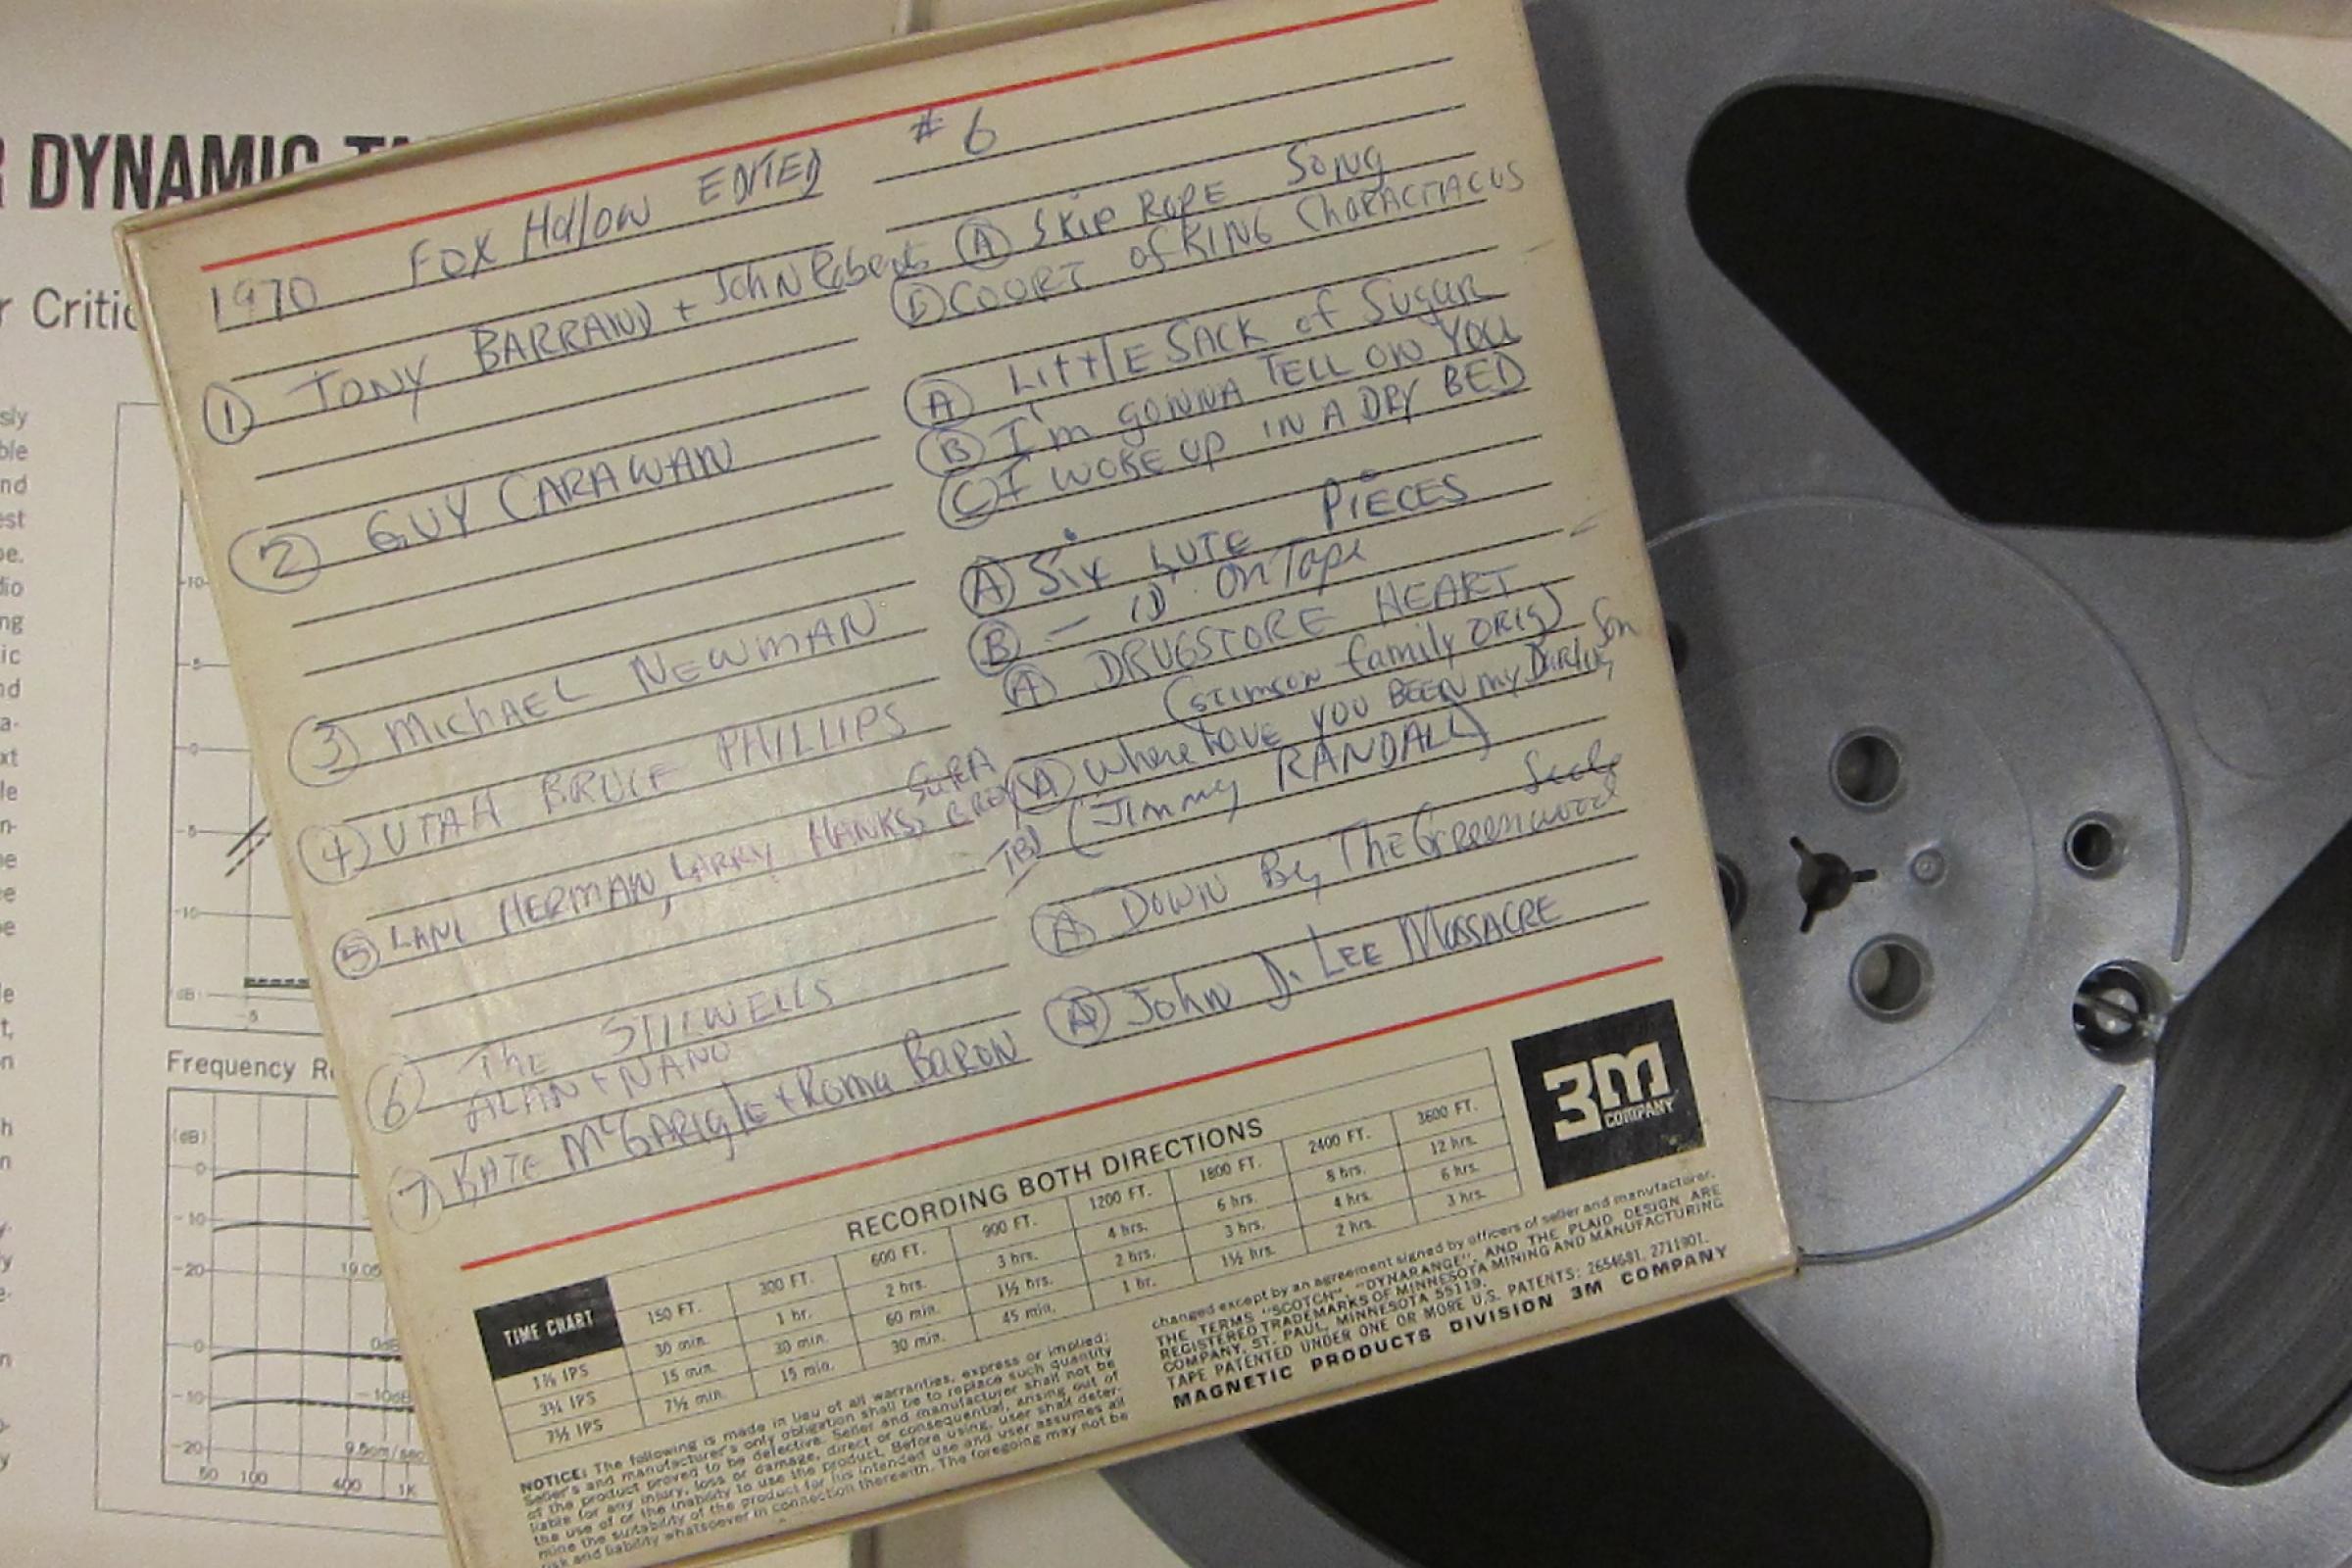 DYNAMIC
r Critic
1970 FOX Hollow EDITED #6
① TONY BARRAND + John Roberts
Ⓐ SKIP ROPE SONG
Ⓑ COURT of KING CHARACTIACUS
② GUY CARAWAN
Ⓐ LITTLE SACK of Sugar
Ⓑ I'm GONNA TELL ON YOU
Ⓒ I WOKE UP IN A DRY BED
③ MICHAEL NEWMAN
Ⓐ Six LUTE PIECES
Ⓑ — ID ON Tape
④ UTAH BRUCE PHILLIPS
Ⓐ DRUGSTORE HEART
(STIMSON family ORIG)
⑤ LANI HERMAN, LARRY HANKS,
Ⓐ Where HAVE YOU BEEN my Darling Son
(Jimmy RANDALL)
⑥ The STILWELLS
ALAN + NANO
Ⓐ DOWN By The Greenwood
⑦ KATE McGARIGLE + Roma BARON
Ⓐ John D. LEE MASSACRE
RECORDING BOTH DIRECTIONS
TIME CHART 150 FT. 300 FT. 600 FT. 900 FT. 1200 FT. 1800 FT. 2400 FT. 3600 FT.
1⅞ IPS 30 min. 1 hr. 2 hrs. 3 hrs. 4 hrs. 6 hrs. 8 hrs. 12 hrs.
3¾ IPS 15 min. 30 min. 60 min. 1½ hrs. 2 hrs. 3 hrs. 4 hrs. 6 hrs.
7½ IPS 7½ min. 15 min. 30 min. 45 min. 1 hr. 1½ hrs. 2 hrs. 3 hrs.
3M
COMPANY
NOTICE: The following is made in lieu of all warranties, express or implied:
Seller's and manufacturer's only obligation shall be to replace such quantity
of the product proved to be defective. Seller and manufacturer shall not be
liable for any injury, loss or damage, direct or consequential, arising out of
the use of or the inability to use the product. Before using, user shall deter-
mine the suitability of the product for his intended use and user assumes all
risk and liability whatsoever in connection therewith. The foregoing may not be
changed except by an agreement signed by officers of seller and manufacturer.
THE TERMS "SCOTCH", "DYNARANGE", AND THE PLAID DESIGN ARE
REGISTERED TRADEMARKS OF MINNESOTA MINING AND MANUFACTURING
COMPANY, ST. PAUL, MINNESOTA 55119.
TAPE PATENTED UNDER ONE OR MORE U.S. PATENTS: 2654681. 2711901.
MAGNETIC PRODUCTS DIVISION 3M COMPANY
Frequency